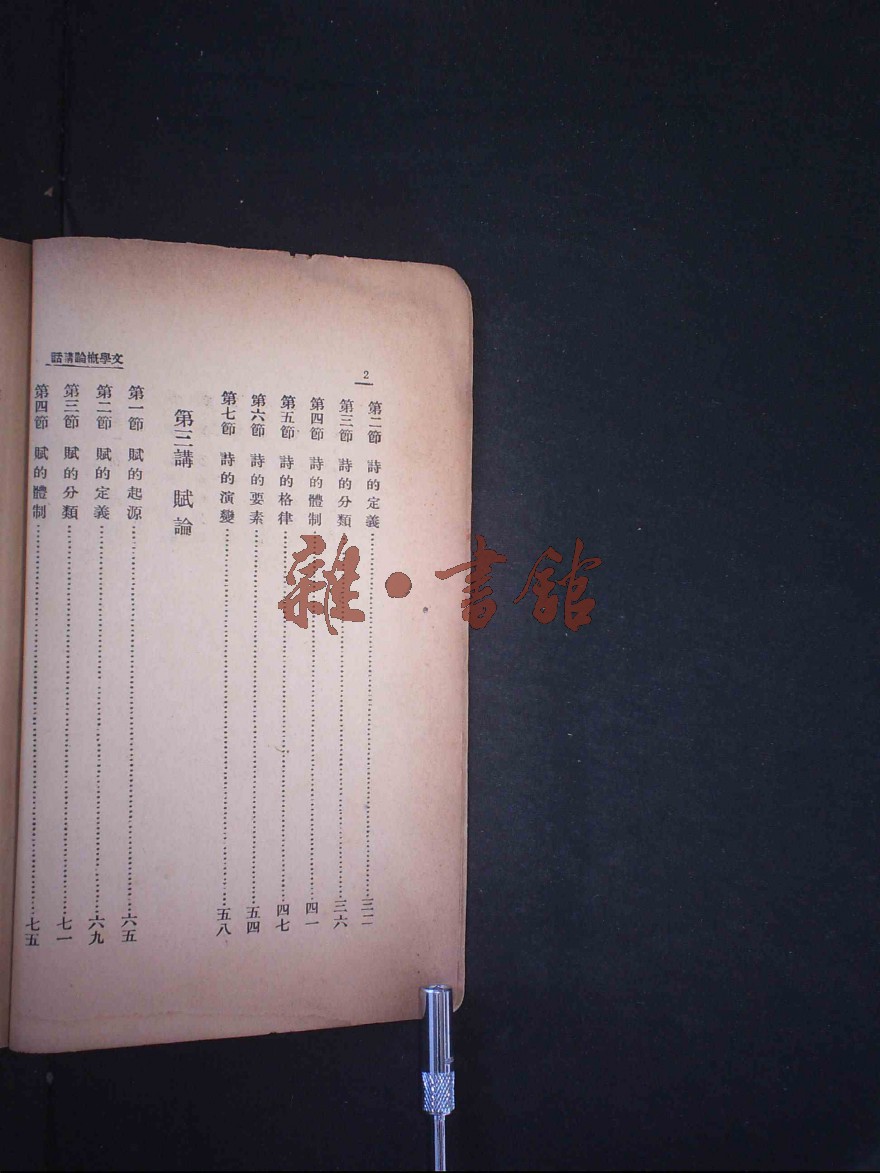 文學概論講話
2
第二節 詩的定義……三二
第三節 詩的分類……三六
第四節 詩的體制……四一
第五節 詩的格律……四七
第六節 詩的要素……五四
第七節 詩的演變……五八
第三講 賦論
第一節 賦的起源……六五
第二節 賦的定義……六九
第三節 賦的分類……七一
第四節 賦的體制……七五
雜·書館